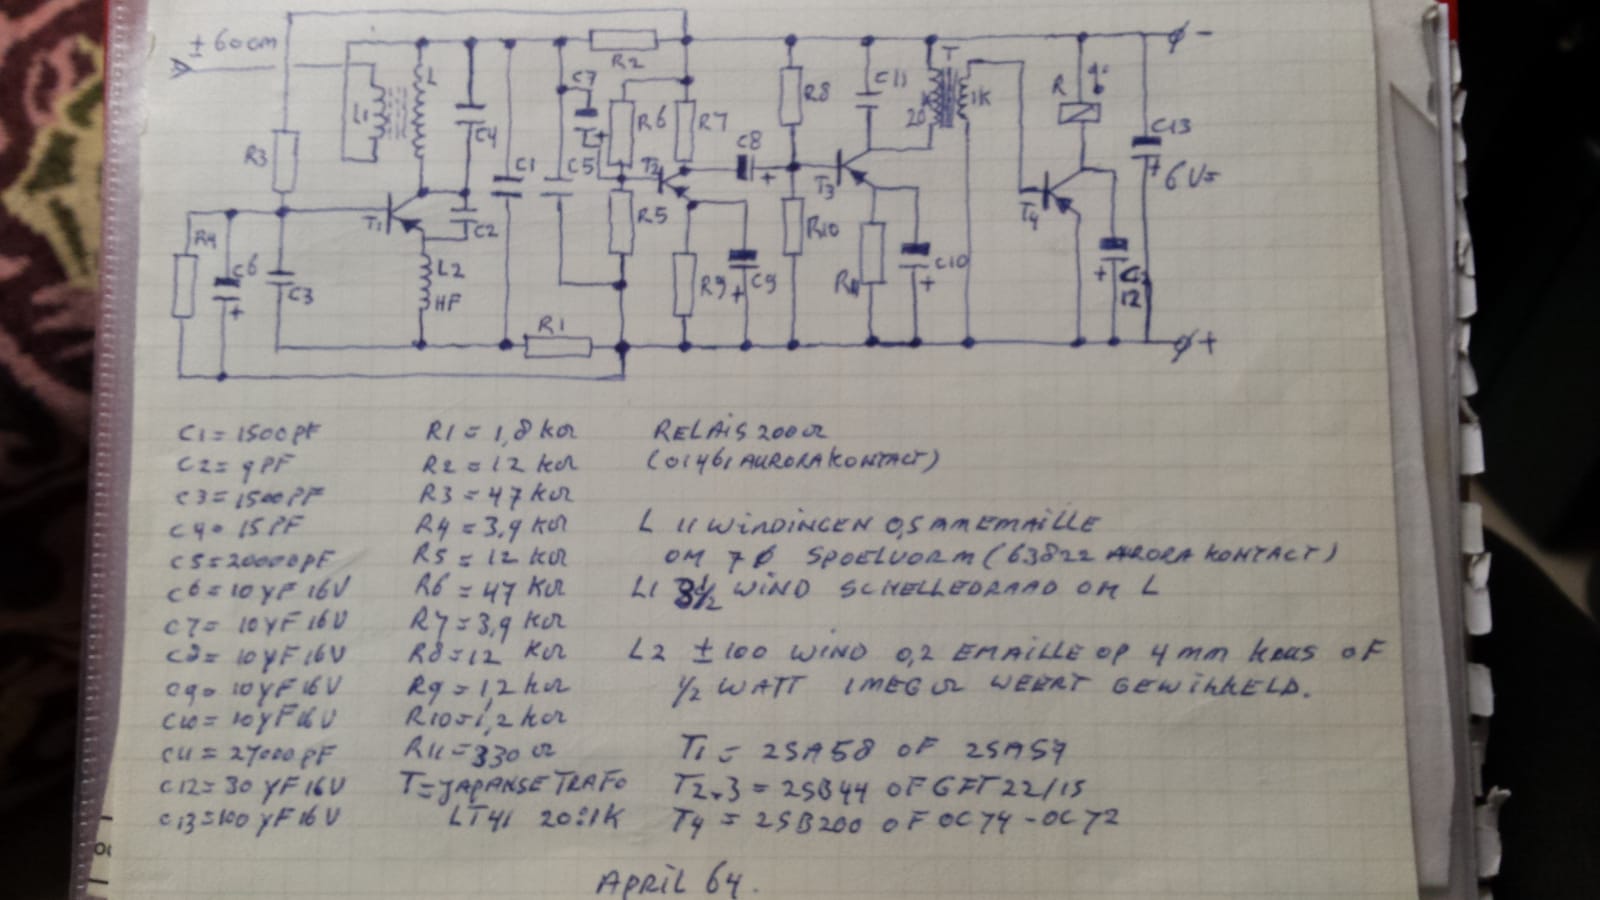 ± 60 cm
R2
C7
R8
C11
T
R
C13
L1
L
C4
R6
R7
20K
1K
R3
C1
C5
T2
C8
+
+
6V=
T1
C2
R5
T3
R10
T4
R4
C6
C3
L2
HF
R9
C9
R11
C10
C12
+
+
+
+
R1
-
+
C1=1500PF R1=1,8 kΩ RELAIS 200Ω
C2=9PF R2=12 kΩ (01461 AURORA KONTACT)
C3=1500PF R3=47 kΩ
C4=15PF R4=3,9 kΩ L 11 WINDINGEN 0,5 MM EMAILLE
C5=20000PF R5=12 kΩ OM 7 Ø SPOELVORM (63822 AURORA KONTACT)
C6=10 µF 16V R6=47 KΩ L1 3½ WIND SCHELLEDRAAD OM L
C7=10 µF 16V R7=3,9 KΩ
C8=10 µF 16V R8=12 KΩ L2 ±100 WIND 0,2 EMAILLE OP 4 mm KOUS OF
C9=10 µF 16V R9=1,2 kΩ ½ WATT 1MEG Ω WEERT GEWIKKELD.
C10=10 µF 16V R10=1,2 kΩ
C11=27000PF R11=330 Ω T1=2SA58 OF 2SA57
C12=30 µF 16V T=JAPANSE TRAFO T2.3=2SB44 OF GFT 22/15
C13=100 µF 16V LT41 20:1K T4=2SB200 OF OC74-OC72
APRIL 64.